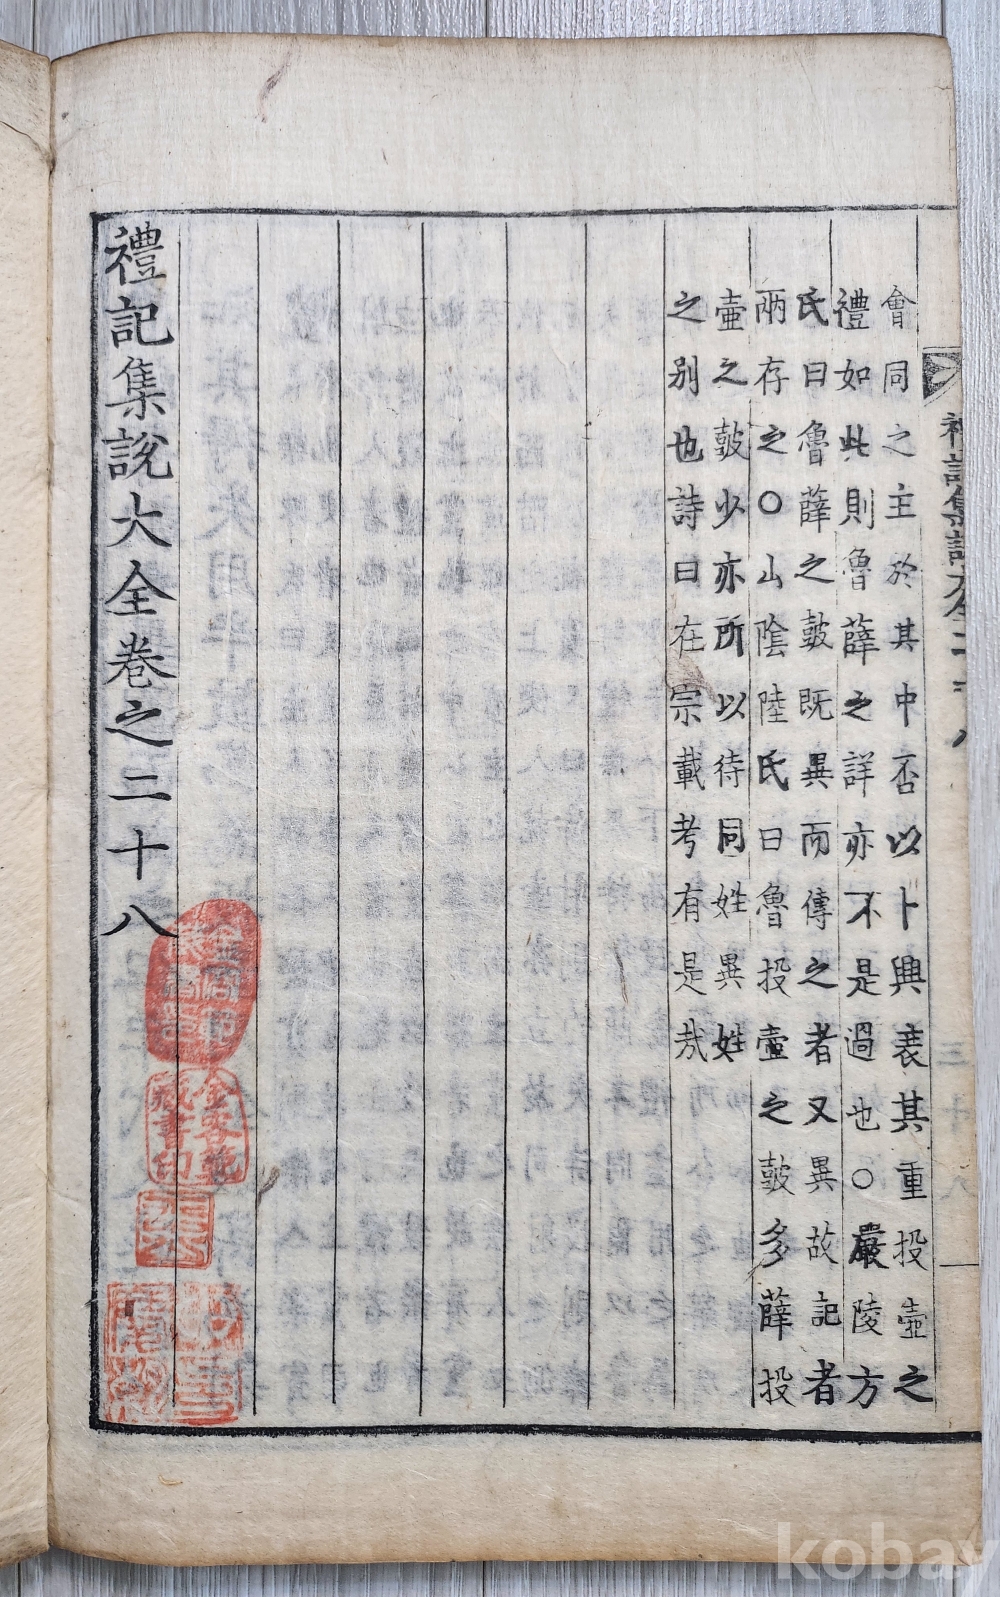 三十八
會同之主於其中否以卜興衰其重投壺之
禮如此則魯薛之詳亦不是過也○嚴陵方
氏曰魯薛之皷既異而傳之者又異故記者
兩存之○山陰陸氏曰魯投壺之皷多薛投
壺之皷少亦所以待同姓異姓
之别也詩曰在宗載考有是哉
禮記集說大全卷之二十八
藏書印
kobay